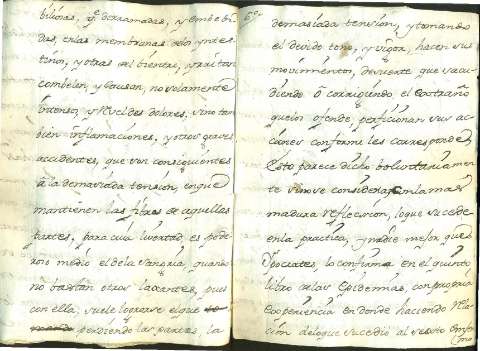 biliosas, q.e derramadas, y embebi
das, en las membranas de los yntes
tinos, y otras del bientre, yrritan
combelen, y Causan, no solamente
yntensos, y Crueldes dolores, sino tam
bien inflamaciónes, y otros graves
accidentes, que son consiguientes
à la demasiada tensión, en que
mantienen las fibras de aquellas
partes, para cuia livertad, es pode
roso médio el de la sangria, quando
no bastan otros laxantes, pues
con ella, suele lograrse el que
perdiendo las partes, la
demasiada tensión, y tomando
el devido tono, y vigor, hacen sus
movimientos, de suerte que sacu
diendo ô corrigiendo, el extraño
que los ofende, perficionan sus ac
ciónes conforme les corresponde,
Esto parece dicho boluntariamen
te sino se considera con la mas
madura reflección, lo que sucede
en la practica, y nadie mejor que
Ypocrates, lo confirma en el quinto
libro de las Epidemias, con propria
experiencia en donde haciendo rela
ción de lo que sucedió al siervo